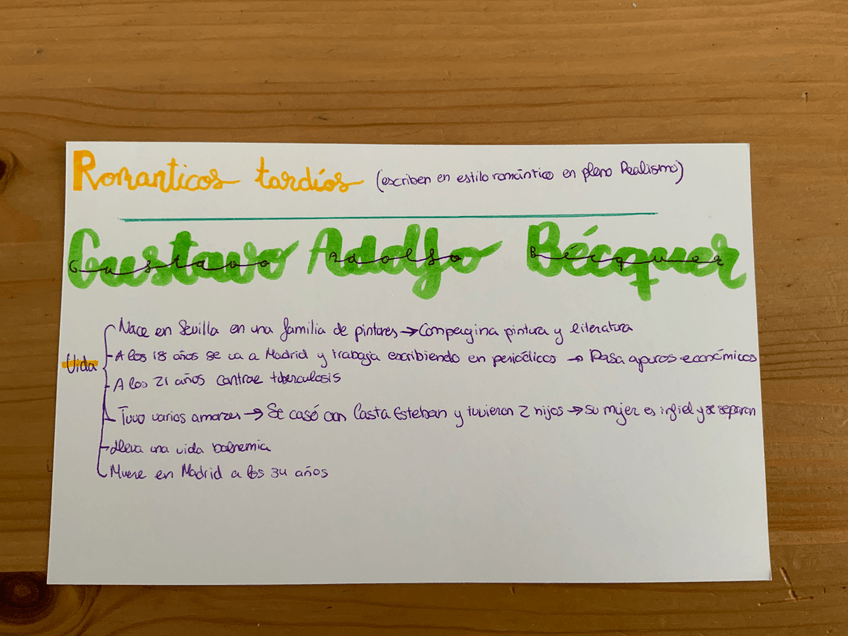 Romanticos tardíos (escriben en estilo romántico en pleno Realismo)
Gustavo Adolfo Bécquer
Gustavo Adolfo Bécquer
Vida
Nace en Sevilla en una familia de pintores → Compagina pintura y literatura
A los 18 años se va a Madrid y trabaja escribiendo en periódicos → Pasa apuros económicos
A los 21 años contrae tuberculosis
Tuvo varios amores → Se casó con Casta Esteban y tuvieron 2 hijos → su mujer es infiel y se separan
lleva una vida bohemia
Muere en Madrid a los 34 años